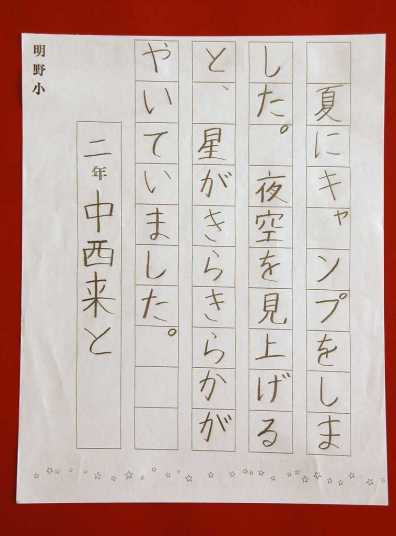 夏にキャンプをしま
した。夜空を見上げる
と、星がきらきらかが
やいていました。
二年 中西来と
明野小